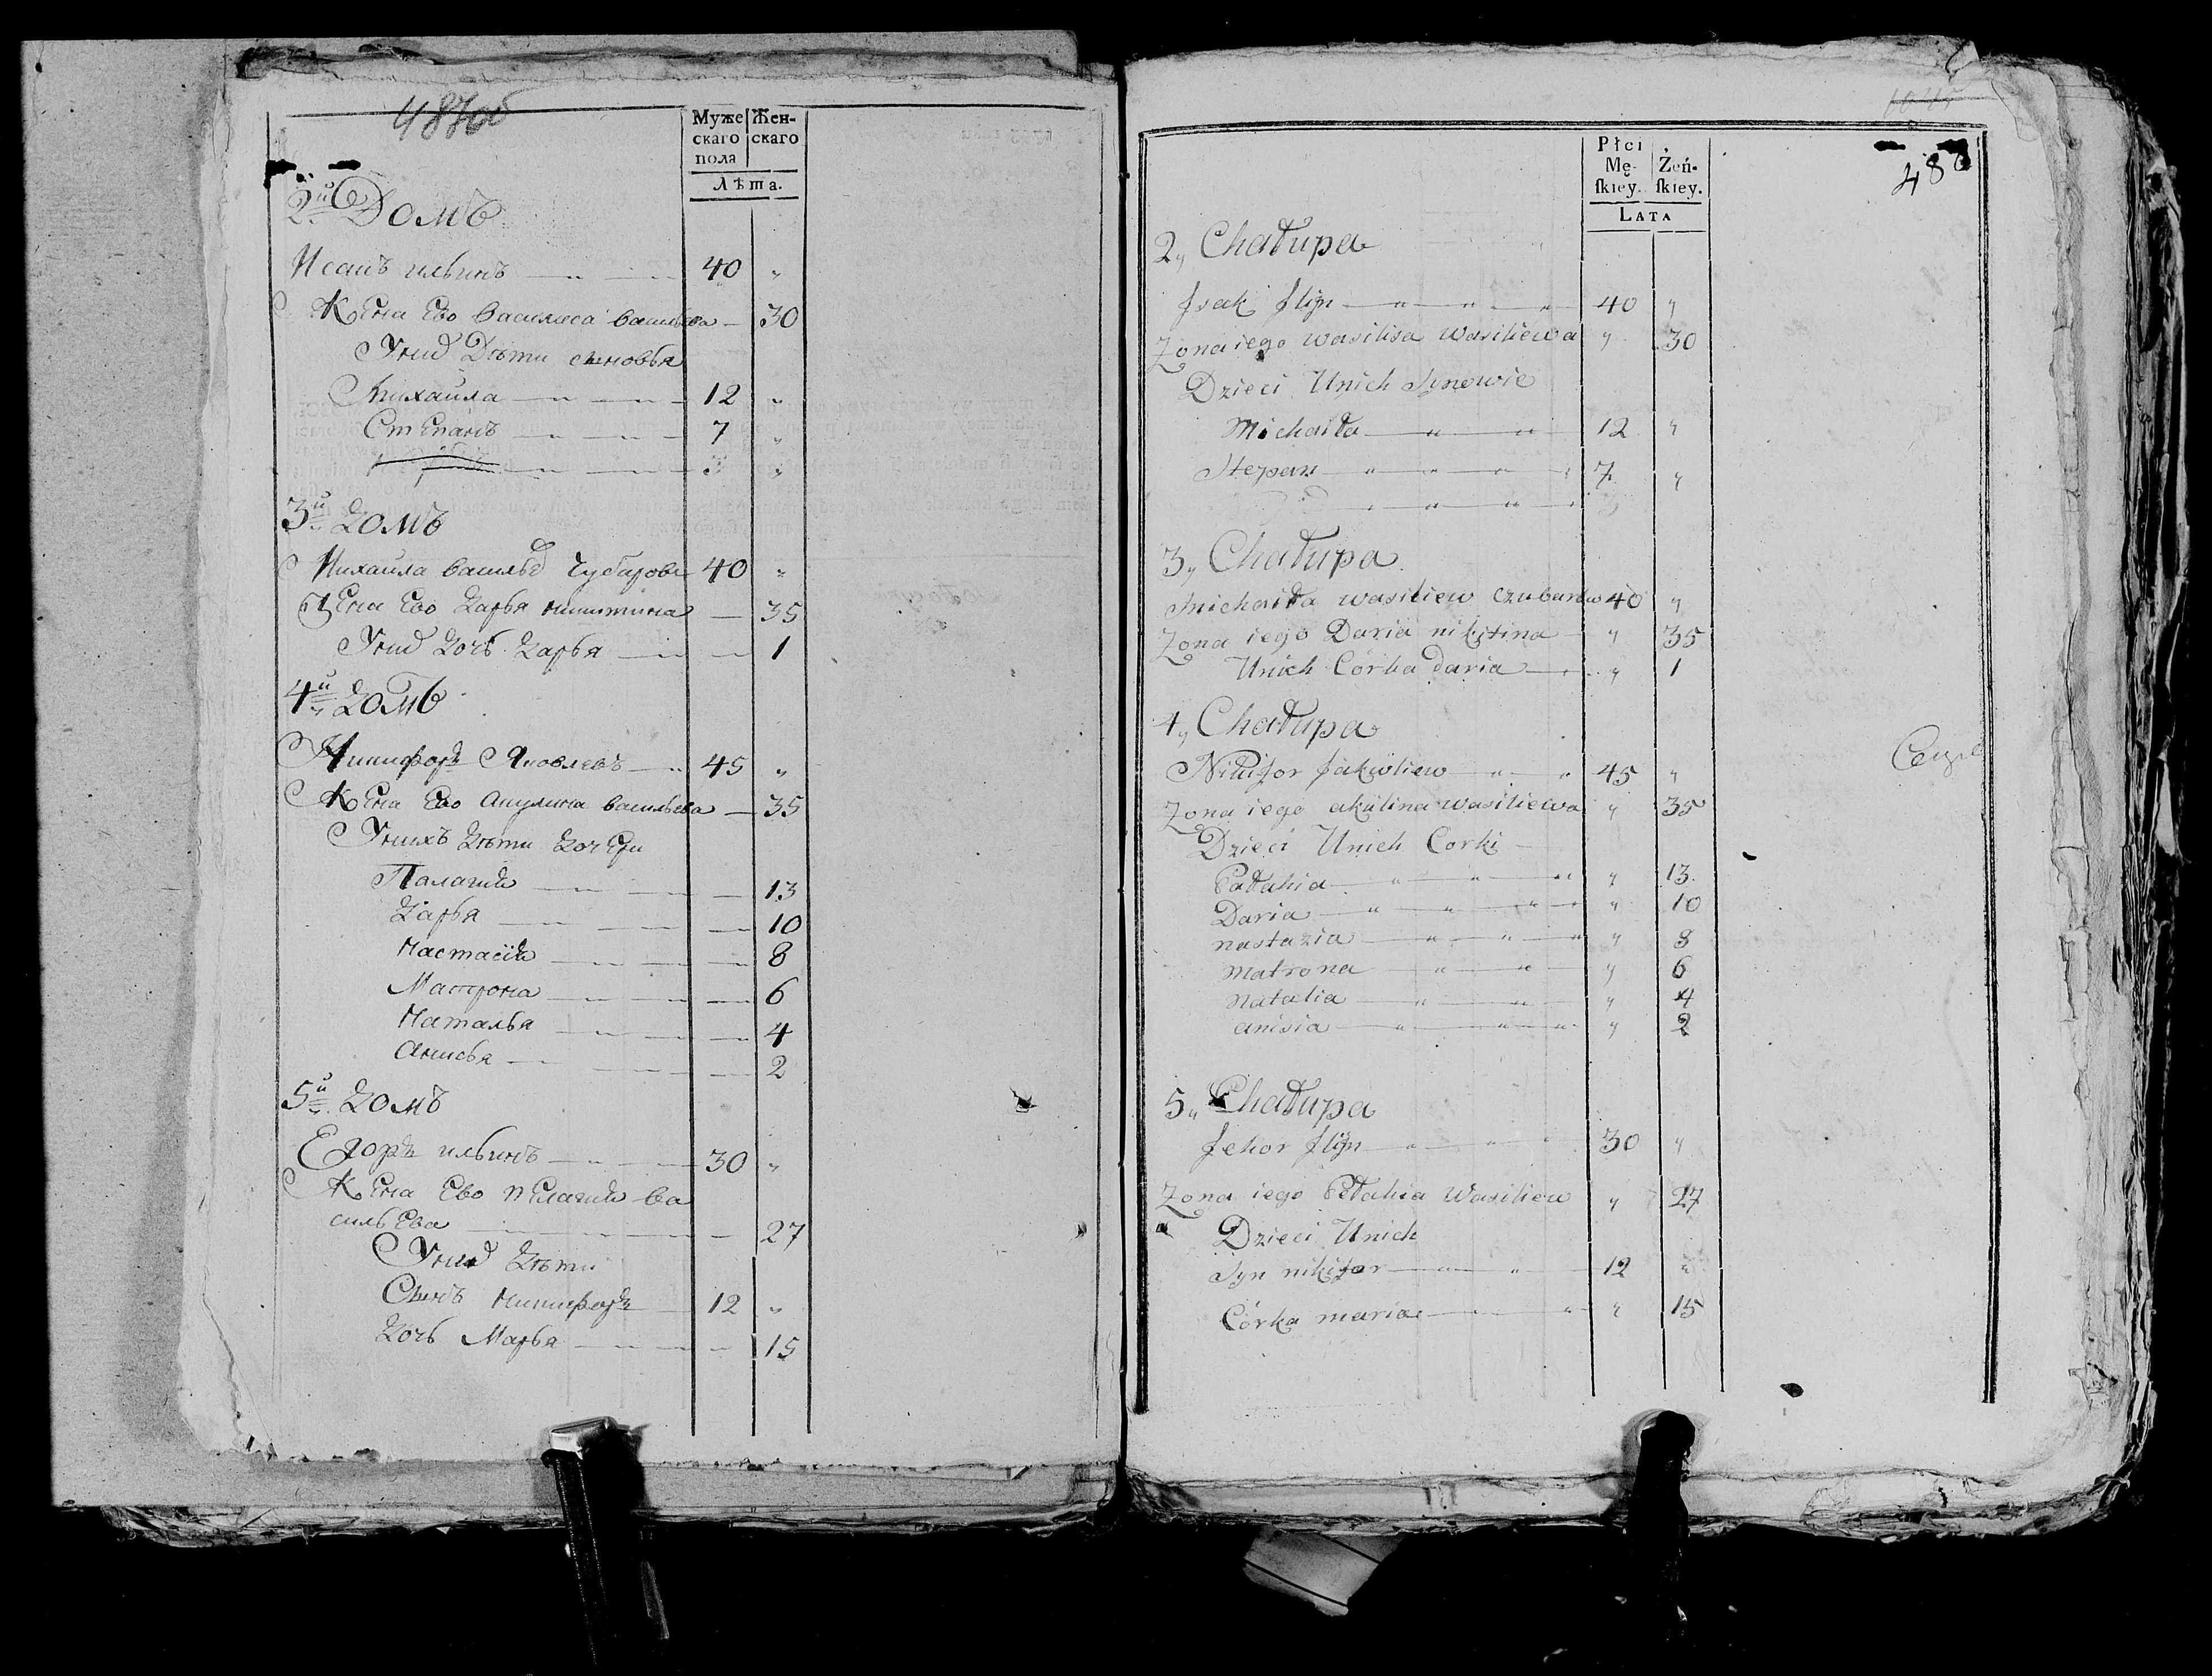 487об
Муже Жен-
скаго скаго
пола
Лѣта.
2й Домъ
Исакъ ильинъ 40 "
Жена Ево Василиса васильева 30
Уних Дѣти сыновья
Михайла 12 "
Степанъ 7 "
3 "
3й домъ
Михайла васильев Чубаров 40 "
Жена Ево дарья никитина 35
Уних дочь дарья 1
4й домъ
Никифоръ Яковлевъ 45 "
Жена Ево акулина васильева 35
Унихъ дѣти дочери
Палагия 13
дарья 10
настасія 8
Матрона 6
наталья 4
анисья 2
5й домъ
Егоръ ильинъ 30 "
Жена Ево пелагия ва
сильева 27
Уних дѣти
Сынъ никифоръ 12 "
дочь Марья 15
Płci
Mę- Żeń-
ſkiey. ſkiey.
LATA
48
2, Chałupa
Jsak Jlijn 40 "
Zona iego wasilisa Wasiliewa " 30
Dzieci Unich Synowie
Michaiła 12 "
Stepan 7 "
3, Chałupa
Michaiła wasiliew Czubarow 40 "
Zona iego Daria nikitina " 35
Unich Córka daria " 1
4, Chałupa
Nikifor Jakowliew 45 "
Zona iego akulina wasiliewa " 35
Dzieci Unich Corki
Pałahia " 13
Daria " 10
nastazia " 8
matrona " 6
natalia " 4
anisia " 2
5, Chałupa
Jehor Jlijn 30 "
Zona iego Pełahia Wasiliew " 27
Dzieci Unich
Syn nikifor 12 "
Córka maria " 15